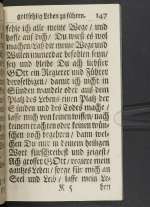 gottseelig Leben zu führen. 147
sehle ich alle meine Wege / und
hoffe auf dich / Du wirst es wol
machen / laß dir meine Wege und
Willen immerdar befohlen seyn /
sey und bleibe Du ach liebster
GOtt ein Regierer und Führer
derselbigen / damit ich nicht in
Sünden wandele oder auf dem
Platz des Lebens einen Platz der
Sünden und des Todes mache /
laß mich von keinen / nach
keinem trachten oder keinen wün-
schen noch begehren / dann wel-
chen Du mir in deinem heiligen
Wort fürschreibest und zeigest /
Ach grosser GOtt / regiere mein
gantzes Leben / sorge für mich an
Seel und Leib / lasse mein Le-
K 5 ben